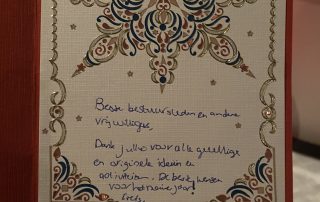 Beste bestuursleden en andere
vrijwilligers,
Dank jullie voor alle gezellige
en originele ideeën en
activiteiten. De beste wensen
voor het nieuwe jaar!